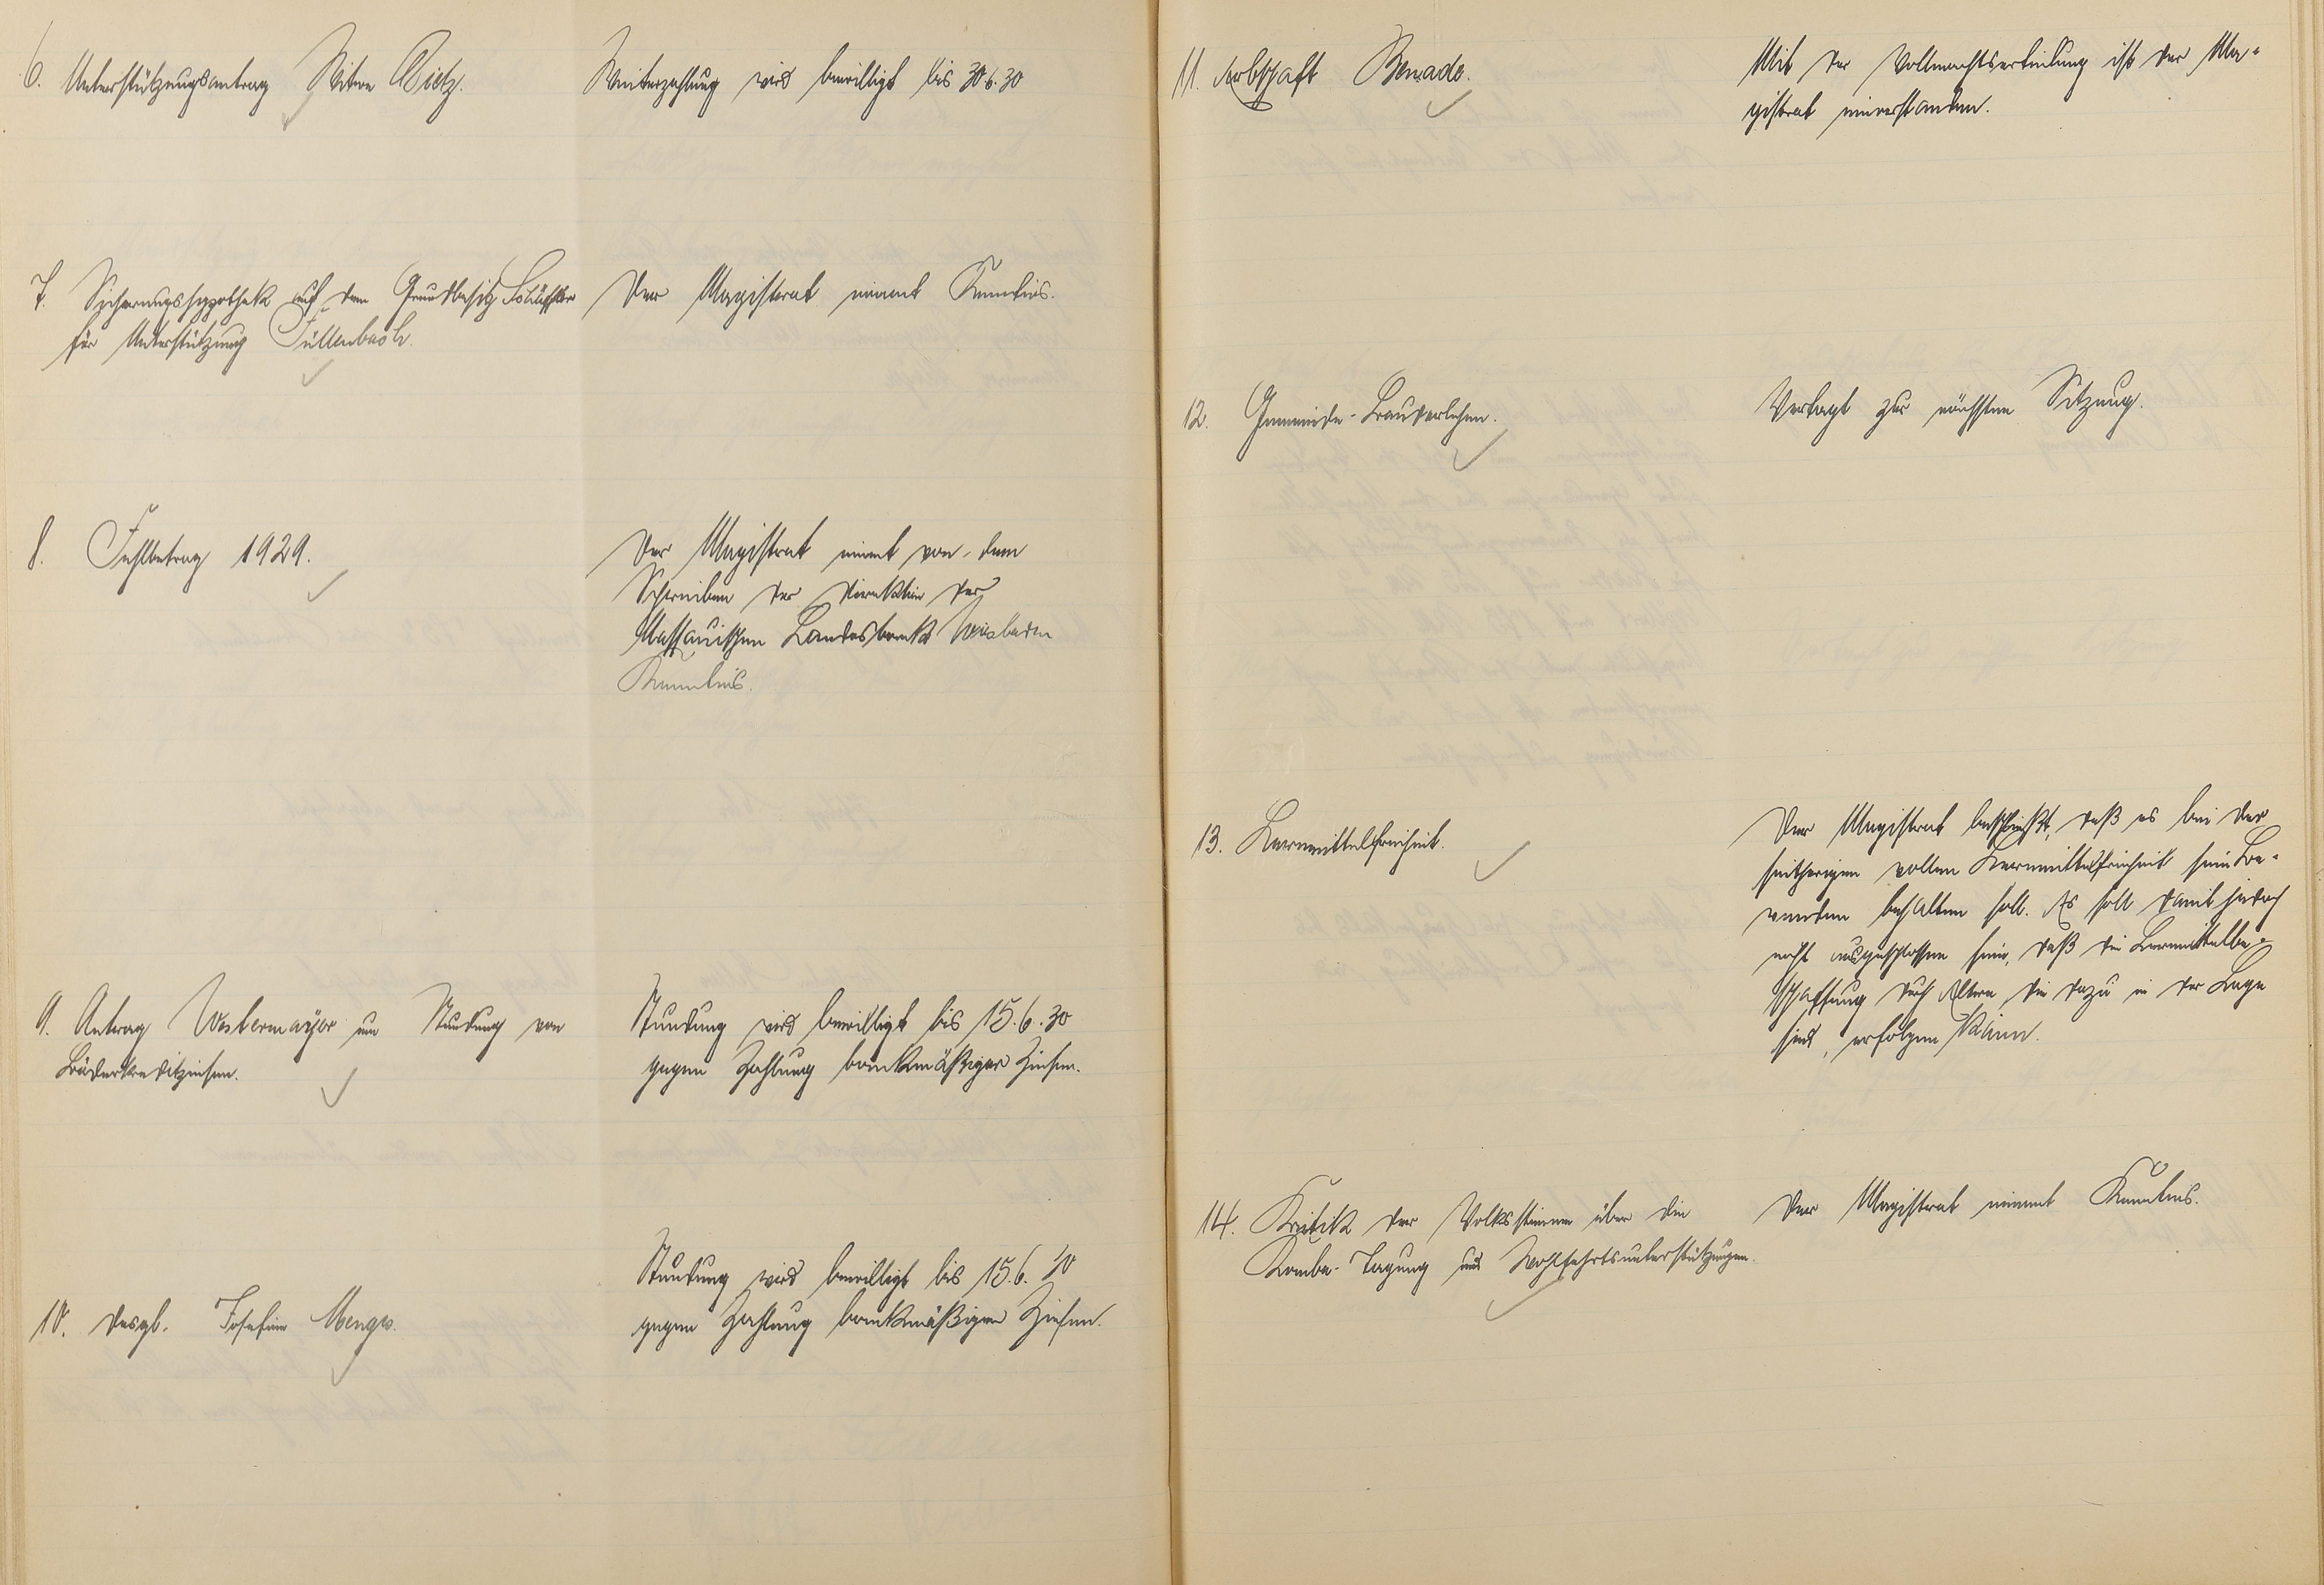 6. Unterstützungsantrag Witwe Dietz.
Weiterzahlung wird bewilligt bis 30.6.30
7. Sicherungshypothek auf dem Grundbesitz
für Unterstützung Füllenbach.
Der Magistrat nimmt Kenntnis.
8. Fehlbetrag 1929.
Der Magistrat nimmt von dem
Schreiben der Direktion der
Nassauischen Landesbank Wiesbaden
Kenntnis.
9. Antrag Westermayer um Stundung von
Bäderkreditzinsen.
Stundung wird bewilligt bis 15.6.30
gegen Zahlung bankmäßiger Zinsen.
10. Desgl. Josefine Menges.
Stundung wird bewilligt bis 15.6.30
gegen Zahlung bankmäßiger Zinsen.
11. Erbschaft Benade.
Mit der Vollmachtserteilung ist der Ma-
gistrat einverstanden.
12. Gemeinde-Baudarlehen.
Vertagt zur nächsten Sitzung.
13. Lernmittelfreiheit.
Der Magistrat beschließt, daß es bei der
seitherigen vollen Lernmittelfreiheit sein Be-
wenden behalten soll. Es soll damit jedoch
nicht ausgeschlossen sein, daß die Lernmittelbe-
schaffung durch Eltern die dazu in der Lage
sind, erfolgen kann.
14. Kritik der Volksstimme über die
Komba-Tagung und Wohlfahrtsunterstützungen.
Der Magistrat nimmt Kenntnis.